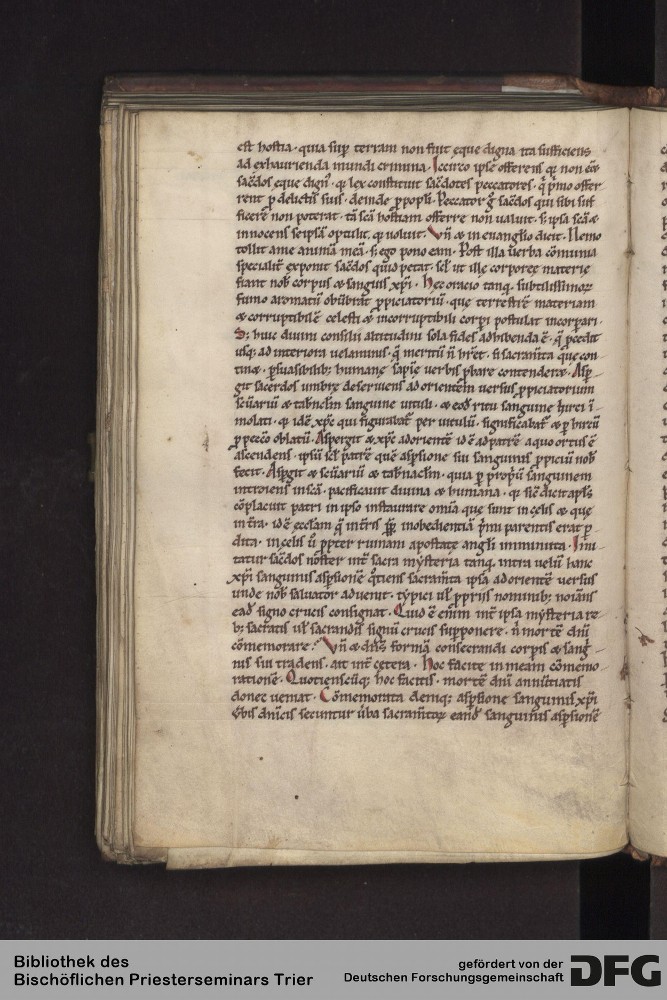 est hostia · quia sup terram non fuit ęque digna ita sufficiens
ad exhaurienda mundi crimina · Iccirco ipse offerens qr non eēt
sacdos ęque dign · qr lex constituit sacdotes peccatores · q pmo offer
rent p delictis suis · deinde p popli · Peccator g sacdos qui sibi suf
ficere non poterat · tā scā hostiam offerre non ualuit · s; ipsa scā &
innocens seipsā optulit, qr uoluit · Vn & in euanglio dicit · Nemo
tollit a me animā meā · s; ego pono eam · Post illa uerba cōmunia
specialit exponit sacdos quid petat · scl ut ille corporeę materię
fiant nob corpus & sanguis xpi · Hec oracio tanq subtilissimor
fumo aromatū obūbrat ppiciatoriū · que terrestrē materiam
& corruptibilē celesti & incorruptibili corpi postulat incorpari ·
S; huic diuini consilii altitudini sola fides adhibenda ē · q pcedit
usq; ad interiora uelaminis · q meritū n hret · si sacramta que con
tinet · psuasibilib; humanę sapię uerbis pbare contenderet · Asp
git sacerdos umbrę deseruiens ad orientem uersus ppiciatorium
scuariū & tabnaclm sanguine uituli · & eod ritu sanguine hirci ī
molati · qr idē xpc qui figurabat per uitulū · significabat & p hircū
p peccō oblatū · Aspergit & xpc ad orientē id ē ad patrē a quo ortus ē
ascendens · ipsū scl patrē que aspsione sui sanguinis ppiciū nob
fecit · Aspgit & scuariū & tabnaclm · quia p propū sanguinem
introiens in scā · pacificauit diuina & humana · qr sic dicit apls
cōplacuit patri in ipso instaurare omia que sunt in celis & que
in tra · id ē ecclam q in tris pp inobedientiā pmi parentis erat p
dita · in celis u ppter ruinam apostatę angli imminuta · Imi
tatur sacdos noster int sacra mysteria tanq intra uelū hanc
xpi sanguinis aspsionē qtiens sacramta ipsa ad orientē uersus
unde nob saluator aduenit · typici ul pprijs nominib; noians
ead signo crucis consignat · Quid ē enim int ipsa mysteria re
b; sacratis ul sacrandis signū crucis supponere · n mortē dni
cōmemorare? Vn & dns formā consecrandi corpis & sang
nis sui tradens · ait int cetera · Hoc facite in meam cōmemo
rationē · Quotienscūq; hoc facitis · mortē dni annūtiatis
donec ueniat · Cōmemorata deniq; aspsione sanguinis xpi
Vbis dnicis secuntur uba sacramtor eand sanguinis aspsionē
Bibliothek des
Bischöflichen Priesterseminars Trier
gefördert von der
Deutschen Forschungsgemeinschaft
DFG